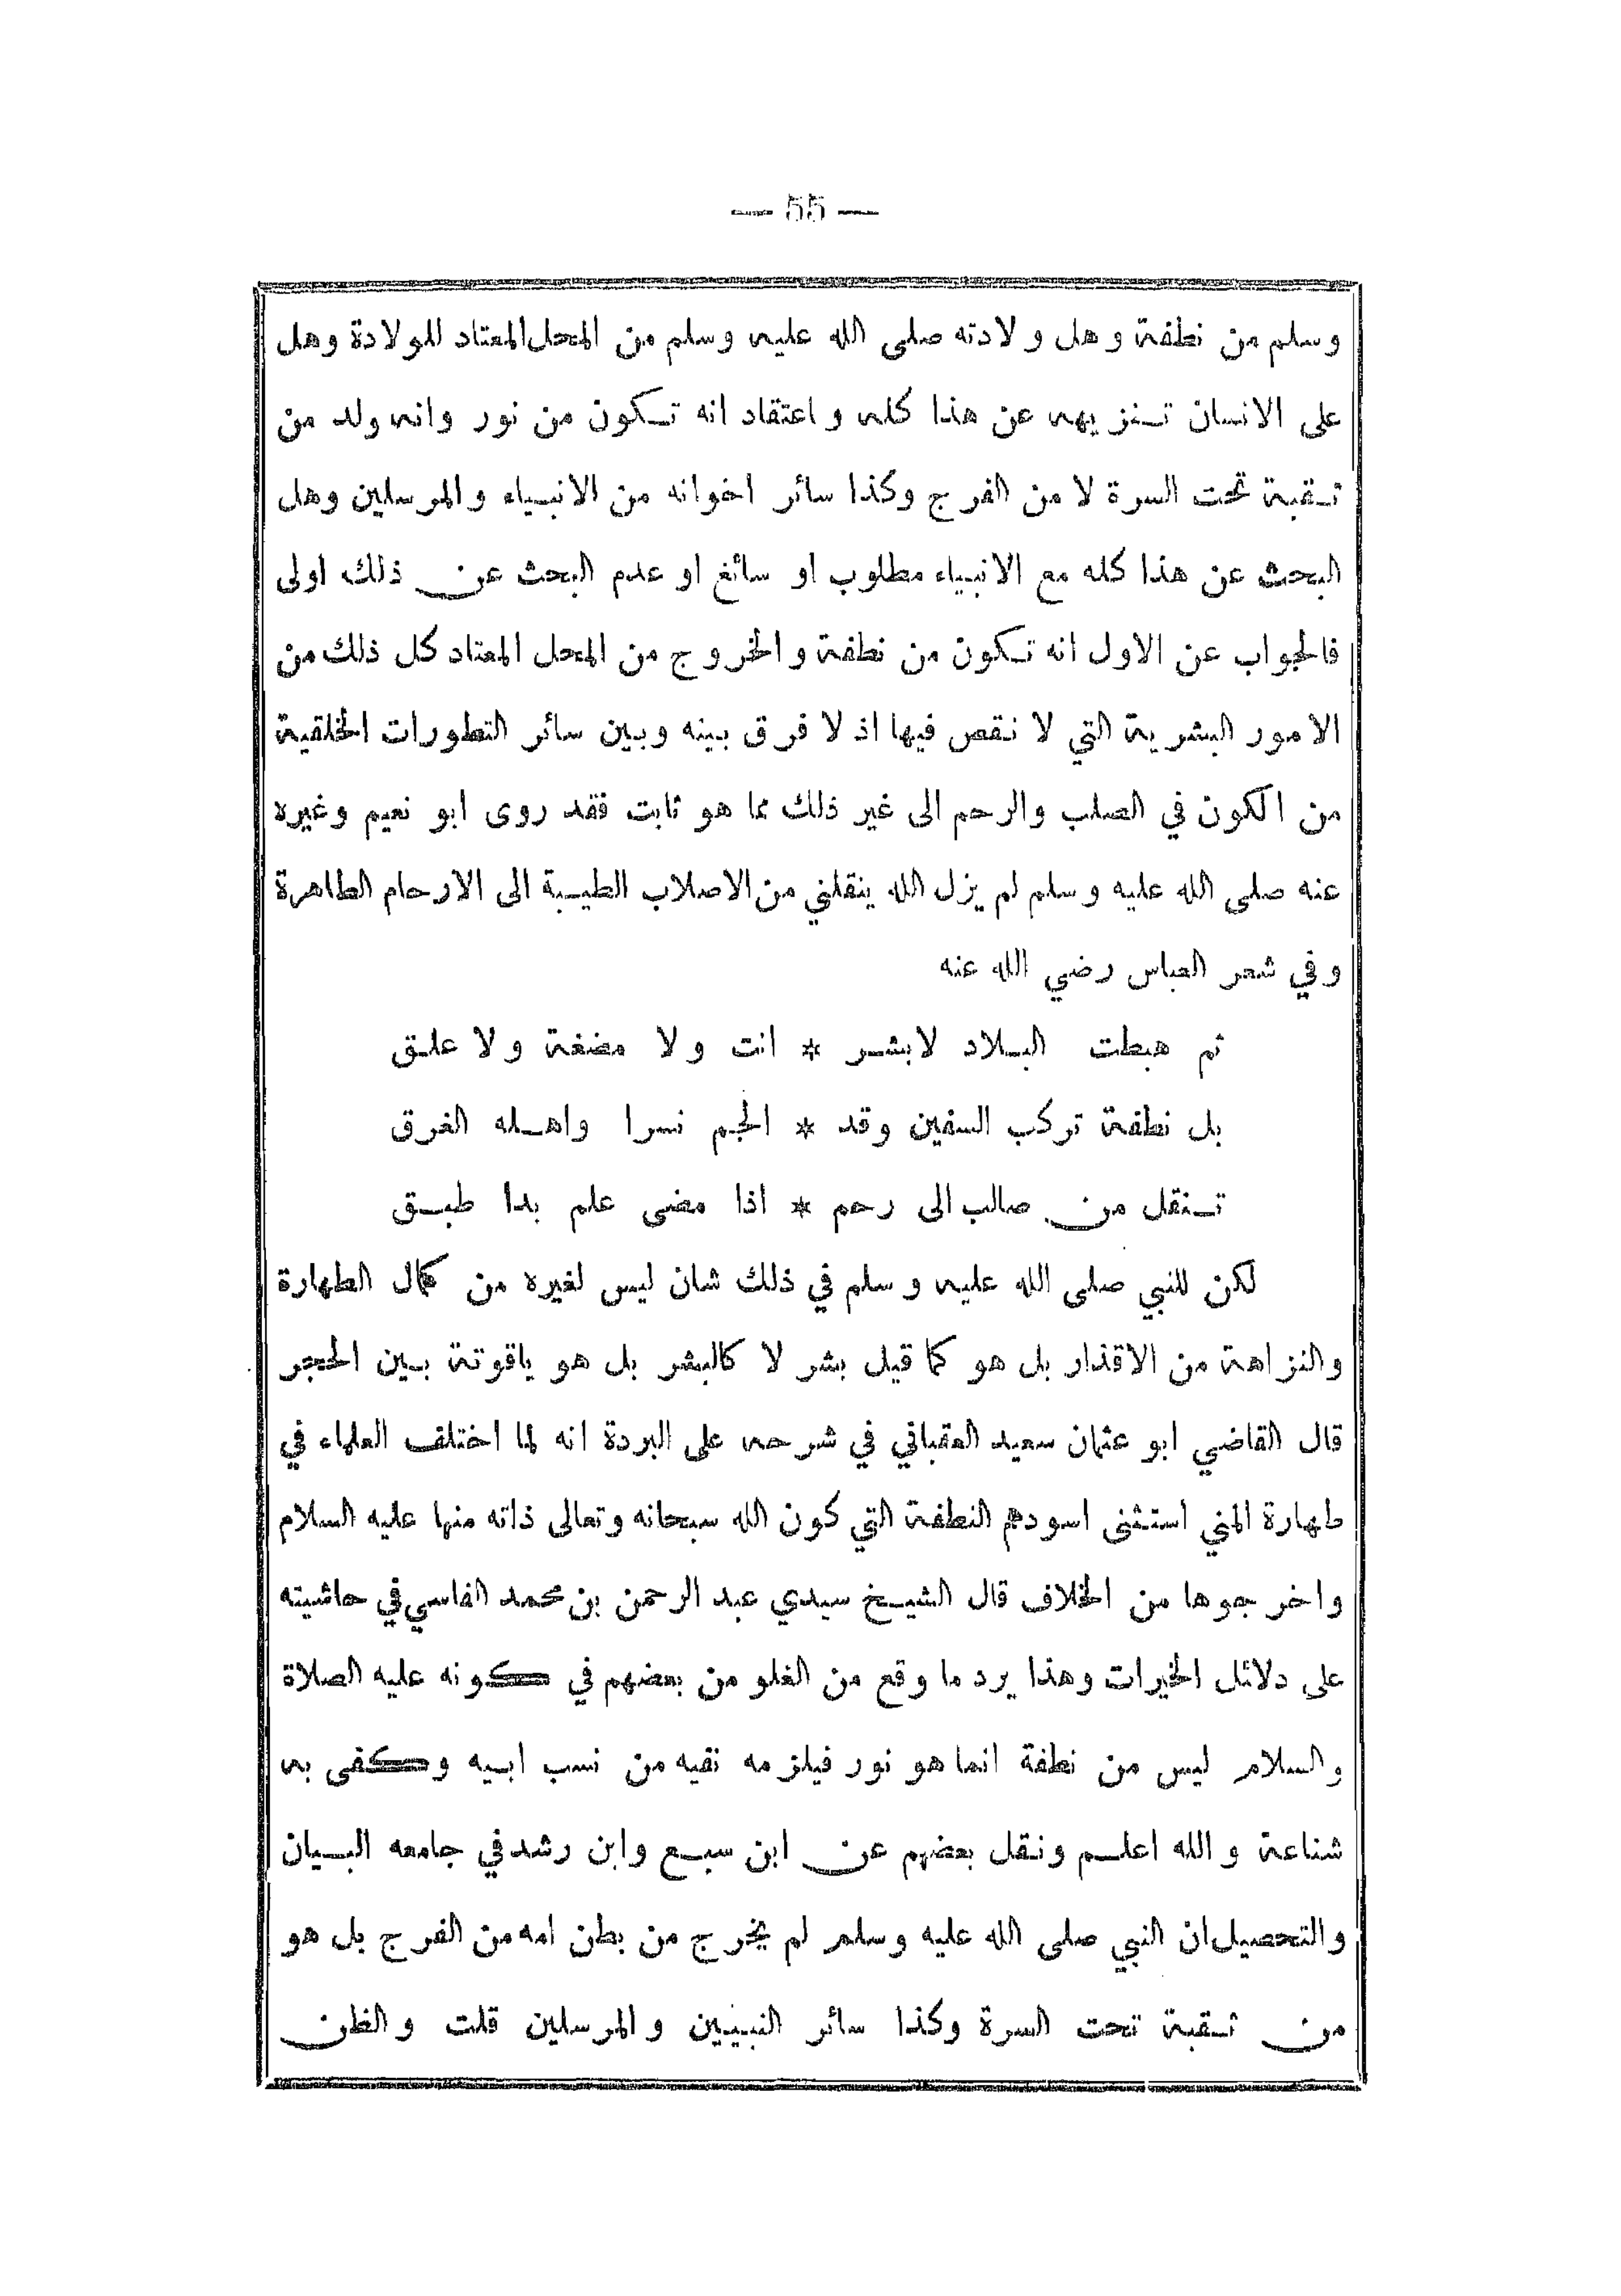 — 55 —
وسلم من نطفة وهل ولادته صلى الله عليه وسلم من المحل المعتاد للولادة وهل
على الانسان تنزيهه عن هذا كله واعتقاد انه تكون من نور وانه ولد من
ثقبة تحت السرة لا من الفرج وكذا سائر اخوانه من الانبياء والمرسلين وهل
البحث عن هذا كله مع الانبياء مطلوب او سائغ او عدم البحث عن ذلك اولى
فالجواب عن الاول انه تكون من نطفة والخروج من المحل المعتاد كل ذلك من
الامور البشرية التي لا نقص فيها اذ لا فرق بينه وبين سائر التطورات الخلقية
من الكون في الصلب والرحم الى غير ذلك مما هو ثابت فقد روى ابو نعيم وغيره
عنه صلى الله عليه وسلم لم يزل الله ينقلني من الاصلاب الطيبة الى الارحام الطاهرة
وفي شعر العباس رضي الله عنه
ثم هبطت البلاد لابشر * انت ولا مضغة ولا علق
بل نطفة تركب السفين وقد * الجم نسرا واهله الغرق
تنقل من صالب الى رحم * اذا مضى علم بدا طبق
لكن للنبي صلى الله عليه وسلم في ذلك شان ليس لغيره من كمال الطهارة
والنزاهة من الاقذار بل هو كما قيل بشر لا كالبشر بل هو ياقوتة بين الحجر
قال القاضي ابو عثمان سعيد العقباني في شرحه على البردة انه لما اختلف العلماء في
طهارة المني استثنى اسودهم النطفة التي كون الله سبحانه وتعالى ذاته منها عليه السلام
واخرجوها من الخلاف قال الشيخ سيدي عبد الرحمن بن محمد الفاسي في حاشيته
على دلائل الخيرات وهذا يرد ما وقع من الغلو من بعضهم في كونه عليه الصلاة
والسلام ليس من نطفة انما هو نور فيلزمه نفيه من نسب ابيه وكفى به
شناعة والله اعلم ونقل بعضهم عن ابن سبع وابن رشد في جامعه البيان
والتحصيل ان النبي صلى الله عليه وسلم لم يخرج من بطن امه من الفرج بل هو
من ثقبة تحت السرة وكذا سائر النبيين والمرسلين قلت والظن